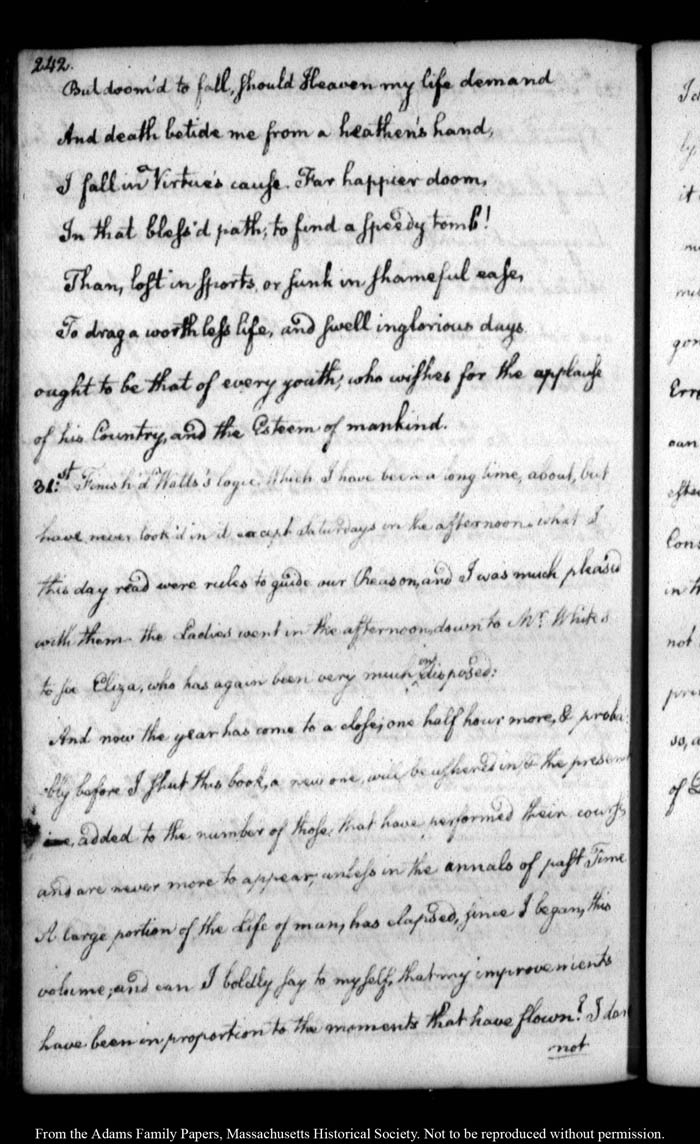 242.
But doom'd to fall, should Heaven my life demand
And death betide me from a heathen's hand,
I fall in Virtue's cause. Far happier doom,
In that bless'd path, to find a speedy tomb!
Than, lost in sports, or sunk in shameful ease,
To drag a worthless life, and swell inglorious days.
ought to be that of every youth, who wishes for the applause
of his Country, and the Esteem of mankind.
31:st Finish'd Watts's logic. Which I have been a long time, about, but
have never look'd in it except Saturdays in the afternoon. what I
this day read were rules to guide our Reason, and I was much pleas'd
with them. the Ladies went in the afternoon, down to Mr. White's
to see Eliza, who has again been very much indisposed:
And now the year has come to a close; one half hour more, & proba-
bly before I shut this book, a new one, will be ushered in, & the present
one, added to the number of those, that have performed their course,
and are never more to appear, unless in the annals of past Time
A large portion of the Life of man, has elapsed, since I began, this
volume; and can I boldly say to myself, that my improvements
have been in proportion to the moments that have flown? I dare
not
From the Adams Family Papers, Massachusetts Historical Society. Not to be reproduced without permission.